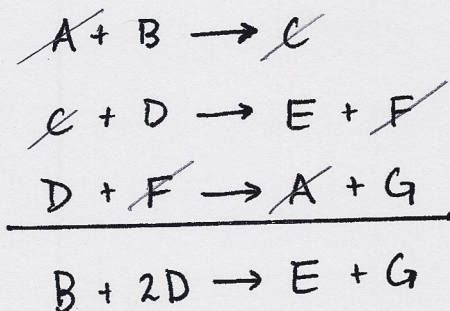 A + B → C
C + D → E + F
D + F → A + G
B + 2D → E + G